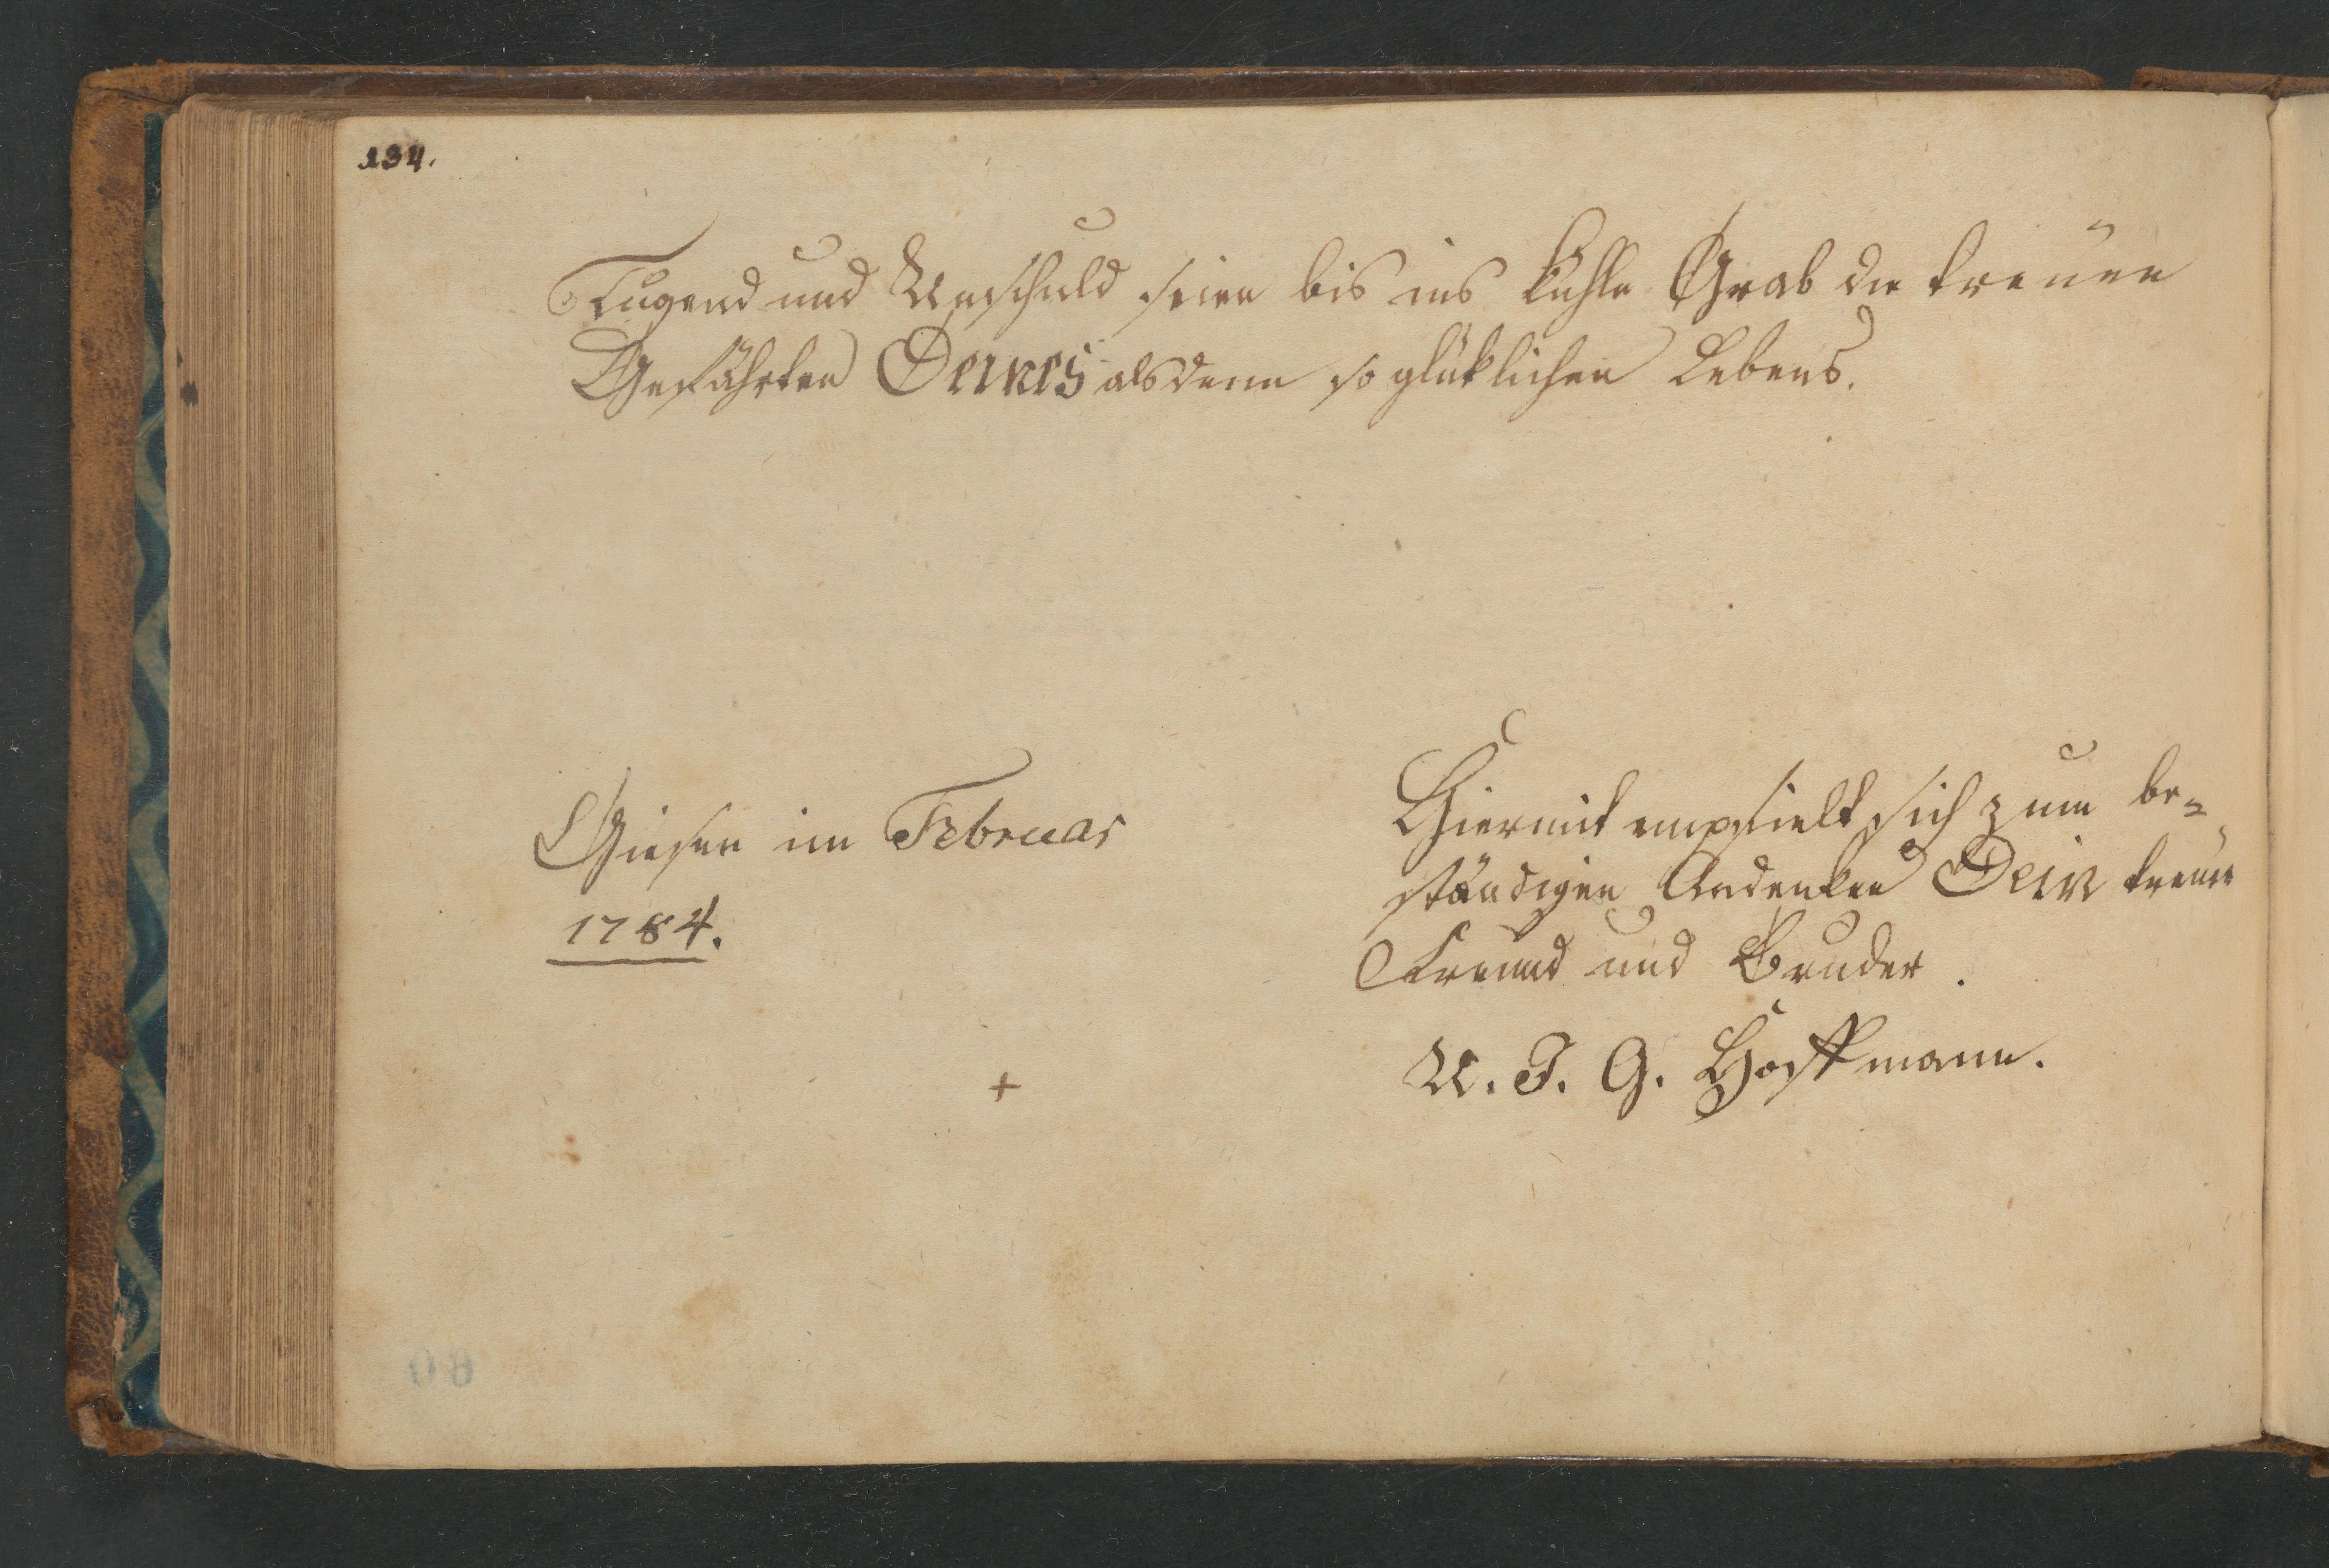 134.
Tugend und Unschuld seien bis ins kühle Grab die treüen
Gefährten Deines alsdenn so glüklichen Lebens.
Giesen im Februar
1784.
Hiermit empfielt sich zum be=
ständigen Andenken Dein treüer
Freund und Bruder.
U. J. G. Hoffmann.
+
80